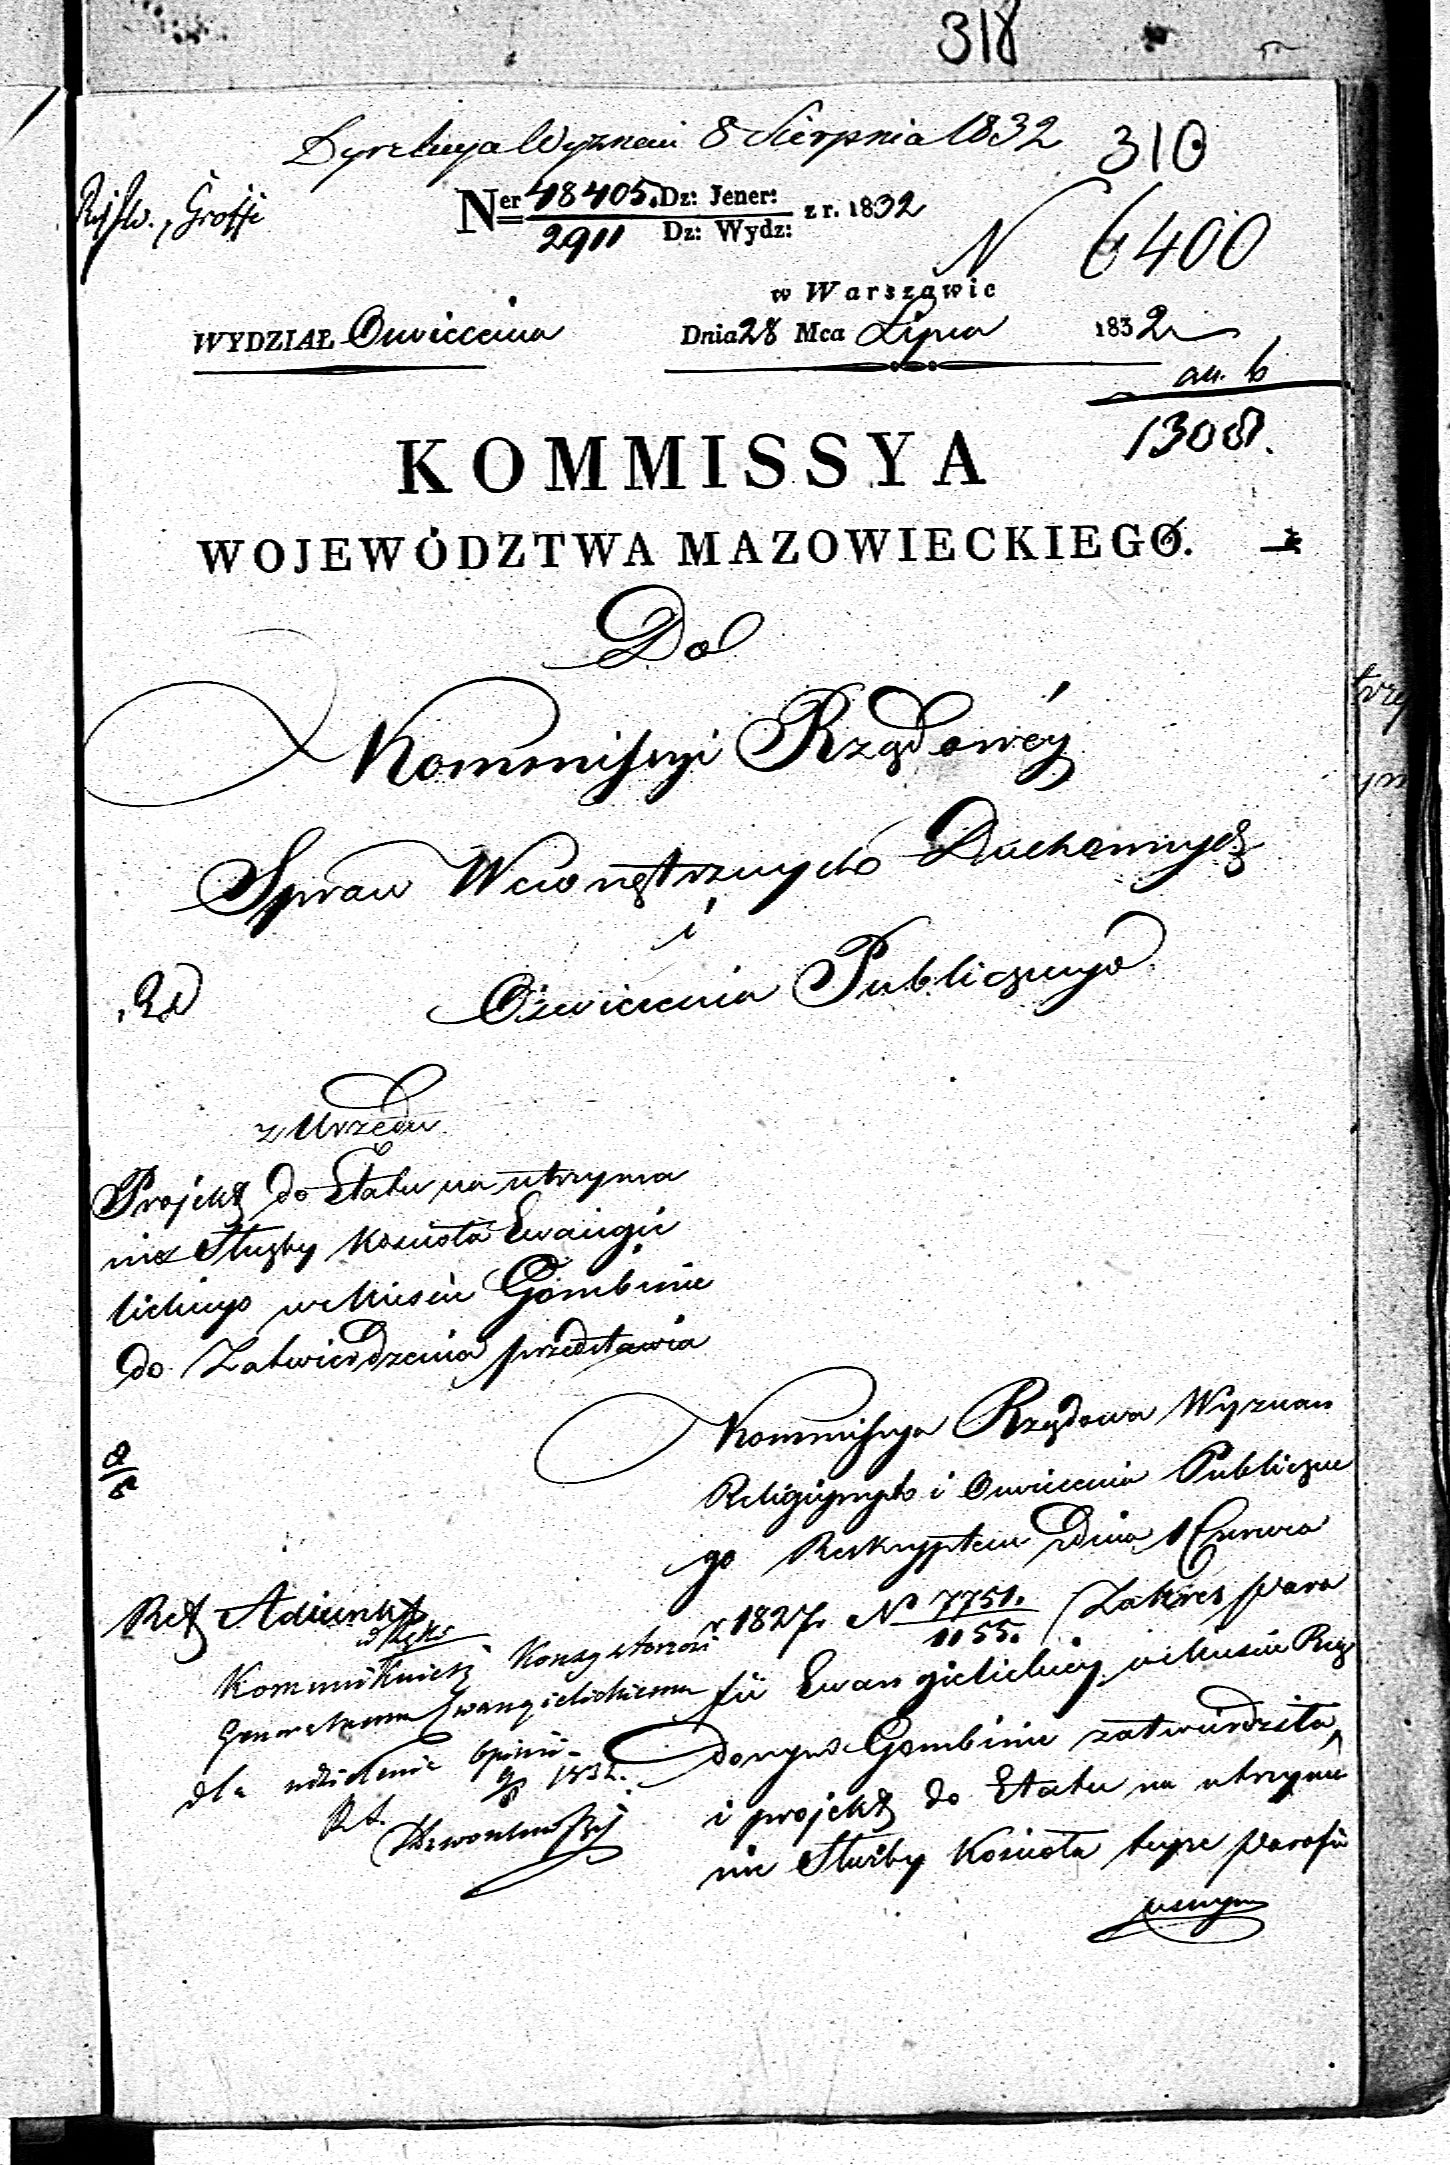 318
Dyrekcya Wyznań 8 Sierpnia 1832
310
Ner 48405. Dz: Jener: z r. 1832
2911 Dz: Wydz:
N 6400
w Warszawie
WYDZIAŁ Oświecenia Dnia 28 Mca Lipca 1832
an. 6
1308.
KOMMISSYA
WOJEWÓDZTWA MAZOWIECKIEGO.
Do
Kommissyi Rządowéy
Spraw Wewnętrznych Duchownych
i
Oświecenia Publicznego
z Urzędu
Projekt do Etatu na utrzyma
nie Służby Kościoła Ewangie
lickiego w Mieście Gombinie
do Zatwierdzenia przedstawia
Kommissya Rządowa Wyznań
Religijnych i Oświecenia Publiczne
go Reskryptem z dnia 1 Czerwca
r 1827. No 7751. Zakres para
1155.
fii Ewangielickiey w Mieście Rzą
dowym Gombinie zatwierdziła,
i projekt do Etatu na utrzyma
nie Służby Kościoła teyże Parafii
Ref Adiunkt
Kommunikuie się Konsystorzowi
Generalnemu Ewangielickiemu
dla udzielenia opinii
1832.